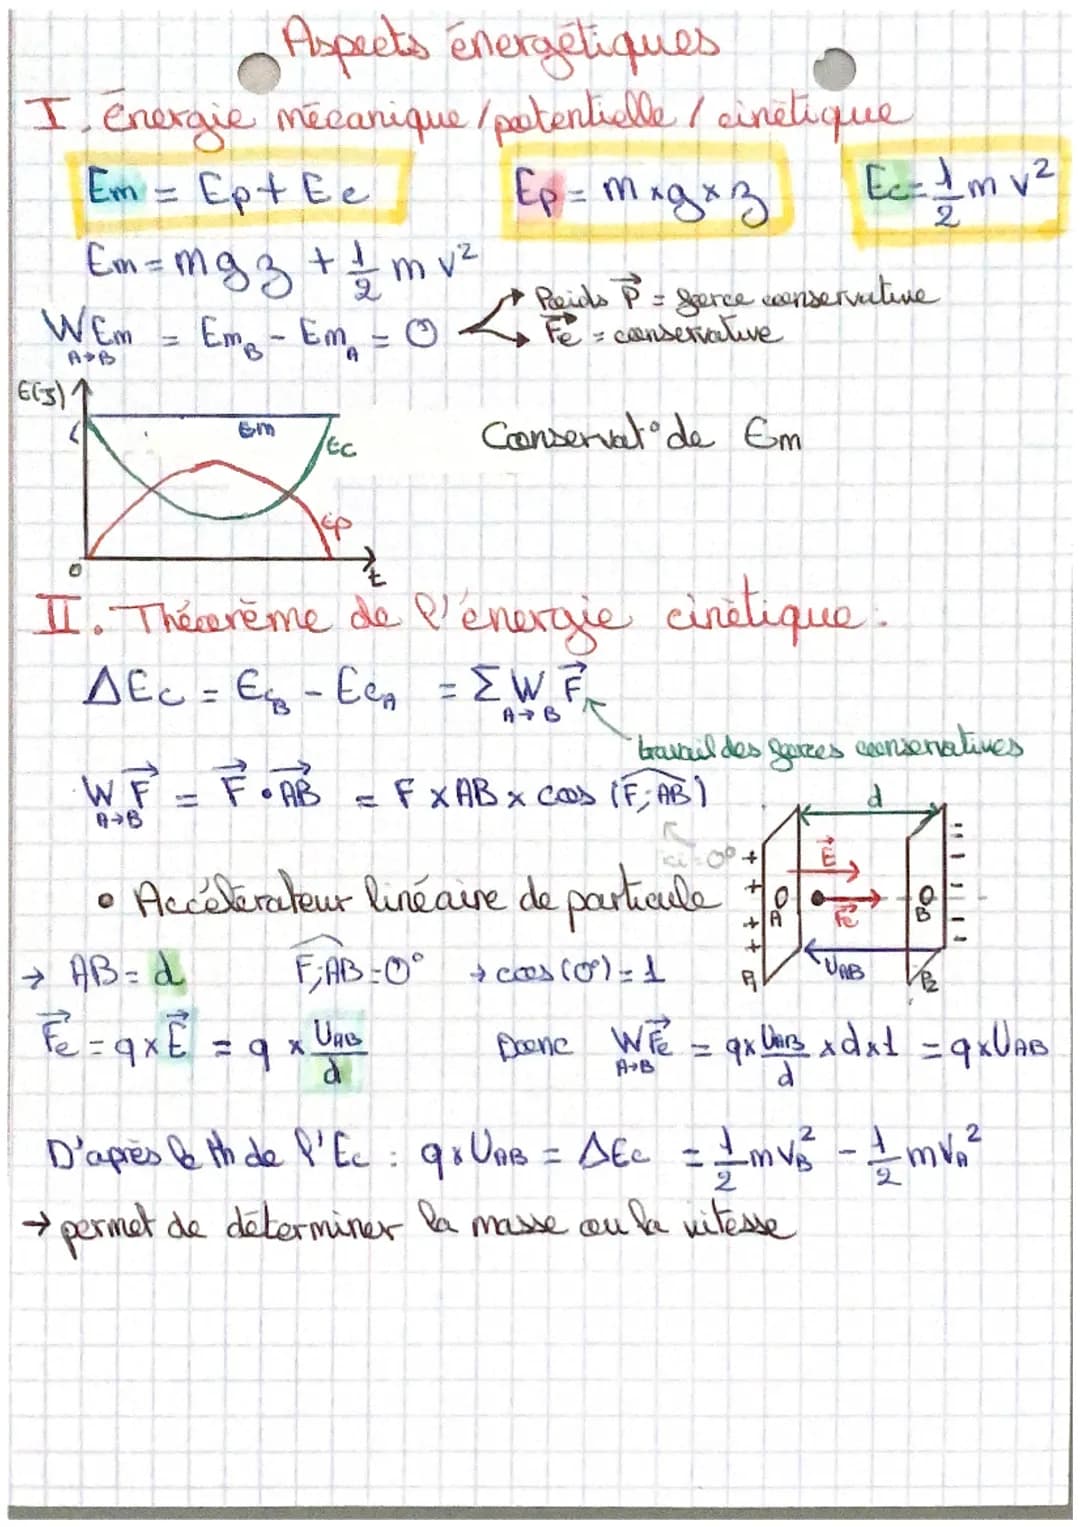 Aspects énergétiques
I. énergie mécanique / potentielle / cinétique
Em = Ep + Ec
Ep = m × g × z
Ec = 1/2 m v²
Em = m g z + 1/2 m v²
W Em A→B = Em_B - Em_A = 0
→ Poids P⃗ = force conservative
→ F⃗e = conservative
E(J)
Em
Ec
Ep
0
t
Conservat° de Em
II. Théorème de l'énergie cinétique.
ΔEc = Ec_B - Ec_A = Σ W F⃗ A→B
travail des forces conservatives
W F⃗ A→B = F⃗ • AB⃗ = F × AB × cos (F⃗; AB⃗)
ici = 0°
• Accélérateur linéaire de particule
d
+ + + +
E⃗
F⃗e
A
B
U_AB
P₂
→ AB = d F; AB = 0° → cos (0°) = 1
F⃗e = q × E⃗ = q × U_AB/d Donc W F⃗e A→B = q × U_AB/d × d × 1 = q × U_AB
D'après le th de l'Ec : q × U_AB = ΔEc = 1/2 m v_B² - 1/2 m v_A²
→ permet de déterminer la masse ou la vitesse